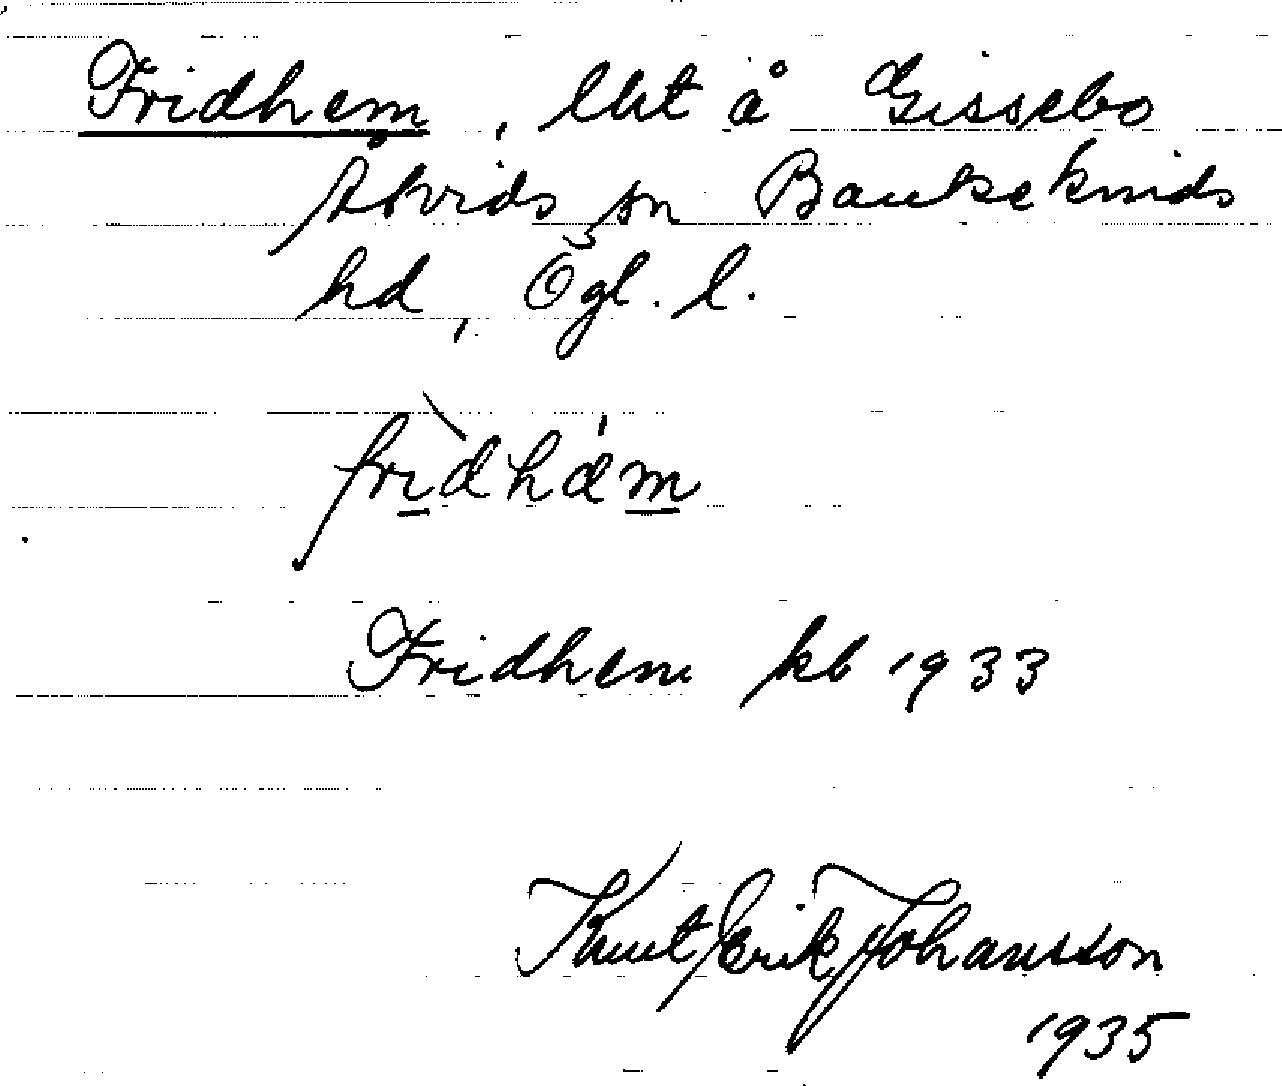 Fridhem, lht å Gissebo
Åtvids sn Bankekinds
hd, Ögl. l.
frì̱dhä́m̱
Fridhem kb 1933
Knut Erik Johansson
1935